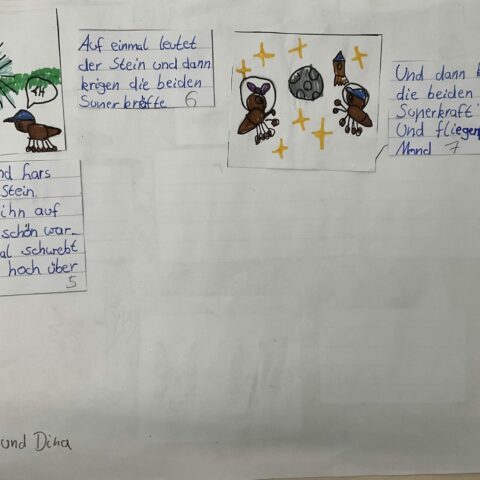 AH
nd hars
Stein.
ihn auf
schön war-
al schwebt
hoch über
5
Auf einmal leutet
der Stein und dann
krigen die beiden
Suner kräfte 6
Und dann k
die beiden
Sunerkraft
Und fliegen
Mond 7
und Dina